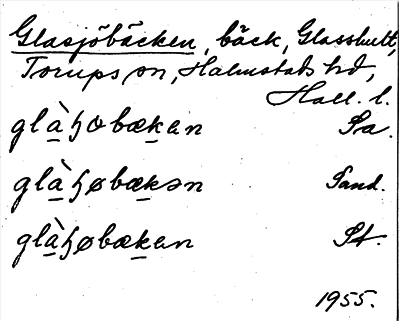 Glasjöbäcken, bäck, Glasshult,
Torups sn, Halmstads hd,
Hall. l.
glàɧobækan Sa.
glàɧøbækən Sand.
glàɧøbækan St.
1955.